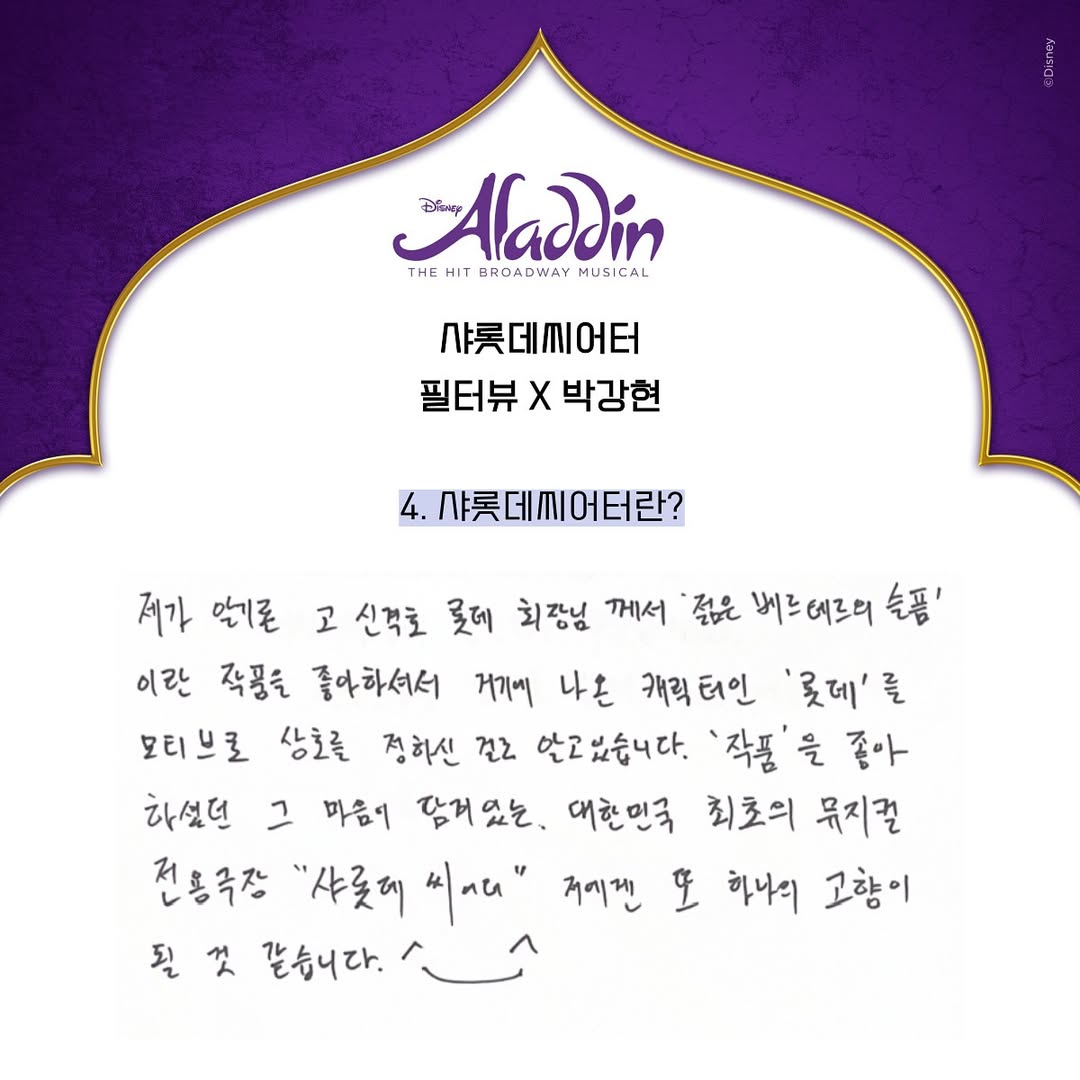 ©Disney
DISNEY
Aladdin
THE HIT BROADWAY MUSICAL
샤롯데씨어터
필터뷰 X 박강현
4. 샤롯데씨어터란?
제가 알기론 고 신격호 롯데 회장님 께서 '젊은 베르테르의 슬픔'
이란 작품을 좋아하셔서 거기에 나온 캐릭터인 '롯데'를
모티브로 상호를 정하신 걸로 알고있습니다. '작품'을 좋아
하셨던 그 마음이 담겨있는, 대한민국 최초의 뮤지컬
전용극장 "샤롯데 씨어터" 저에겐 또 하나의 고향이
될 것 같습니다. ^‿^